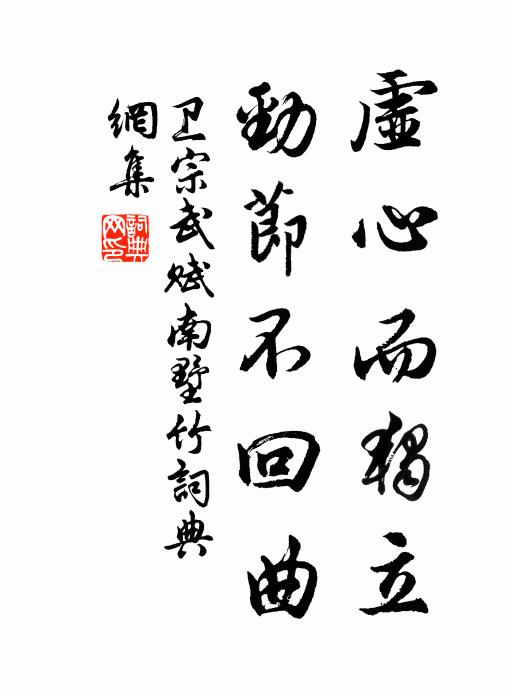 虛心而獨立
勁節不回曲
卫宗武賦南墅竹詞典
網集
詞典网印